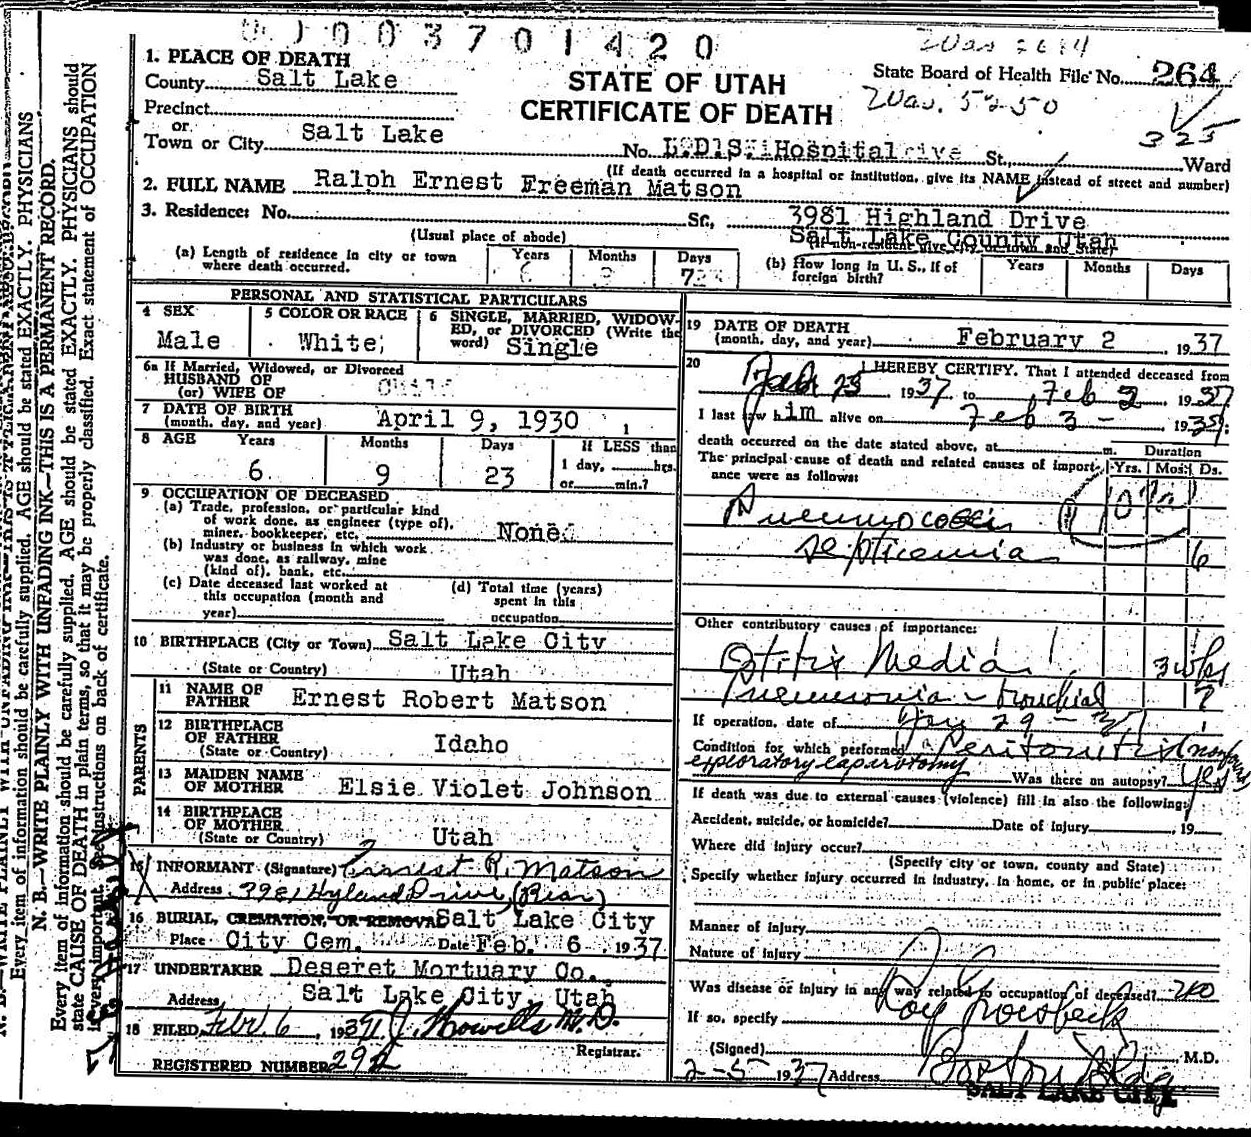 01003701420
Was 2614
1. PLACE OF DEATH
County Salt Lake
STATE OF UTAH
CERTIFICATE OF DEATH
State Board of Health File No. 264
Was. 5250
325
Precinct
or
Town or City Salt Lake
No. L.D.S. Hospital St., Ward
(If death occurred in a hospital or institution, give its NAME instead of street and number)
2. FULL NAME Ralph Ernest Freeman Matson
3. Residence: No. St., 3981 Highland Drive
Salt Lake County Utah
(Usual place of abode)
(If non-resident give city or town and State)
(a) Length of residence in city or town where death occurred. Years 6 Months Days
(b) How long in U. S., if of foreign birth? Years Months Days
PERSONAL AND STATISTICAL PARTICULARS
4 SEX
Male
5 COLOR OR RACE
White
6 SINGLE, MARRIED, WIDOWED, or DIVORCED (Write the word) Single
6a If Married, Widowed, or Divorced
HUSBAND OF
(or) WIFE OF
7 DATE OF BIRTH
(month, day, and year) April 9, 1930
8 AGE Years Months Days If LESS than
6 9 23 1 day, hrs.
or min.?
9 OCCUPATION OF DECEASED
(a) Trade, profession, or particular kind
of work done, as engineer (type of),
miner, bookkeeper, etc. None
(b) Industry or business in which work
was done, as railway, mine
(kind of), bank, etc.
(c) Date deceased last worked at
this occupation (month and
year)
(d) Total time (years)
spent in this
occupation
10 BIRTHPLACE (City or Town) Salt Lake City
(State or Country) Utah
PARENTS
11 NAME OF
FATHER Ernest Robert Matson
12 BIRTHPLACE
OF FATHER
(State or Country) Idaho
13 MAIDEN NAME
OF MOTHER Elsie Violet Johnson
14 BIRTHPLACE
OF MOTHER
(State or Country) Utah
15 INFORMANT (Signature) Ernest R. Matson
Address 3981 Hyland Drive, (Rear)
16 BURIAL, CREMATION, OR REMOVAL Salt Lake City
Place City Cem. Date Feb. 6 1937
17 UNDERTAKER Deseret Mortuary Co.
Address Salt Lake City, Utah
18 FILED Feb. 6, 1937 Howells M.D.
Registrar.
REGISTERED NUMBER 292
19 DATE OF DEATH
(month, day, and year) February 2, 1937
20 I HEREBY CERTIFY, That I attended deceased from
25 1937, to Feb 2, 1937
I last saw him alive on Feb 3 - 1937;
death occurred on the date stated above, at m.
Duration
The principal cause of death and related causes of importance were as follows: Yrs. Mos. Ds.
Pneumococcic
septicemia 6
Other contributory causes of importance:
Otitis Media 3 wks
Pneumonia - bronchial ?
If operation, date of Jan 29 - 37
Condition for which performed Peritonitis (non found)
exploratory laparotomy Was there an autopsy? yes
If death was due to external causes (violence) fill in also the following:
Accident, suicide, or homicide? Date of injury, 19
Where did injury occur?
(Specify city or town, county and State)
Specify whether injury occurred in industry, in home, or in public place:
Manner of injury
Nature of injury
Was disease or injury in any way related to occupation of deceased? no
If so, specify
(Signed) Roy Groesbeck M.D.
2-5 1937 Address Boston Bldg
SALT LAKE CITY
N. B.—WRITE PLAINLY WITH UNFADING INK—THIS IS A PERMANENT RECORD.
Every item of information should be carefully supplied. AGE should be stated EXACTLY. PHYSICIANS should
state CAUSE OF DEATH in plain terms, so that it may be properly classified. Exact statement of OCCUPATION
is very important. See instructions on back of certificate.
Every item of information should be carefully supplied. AGE should be stated EXACTLY. PHYSICIANS